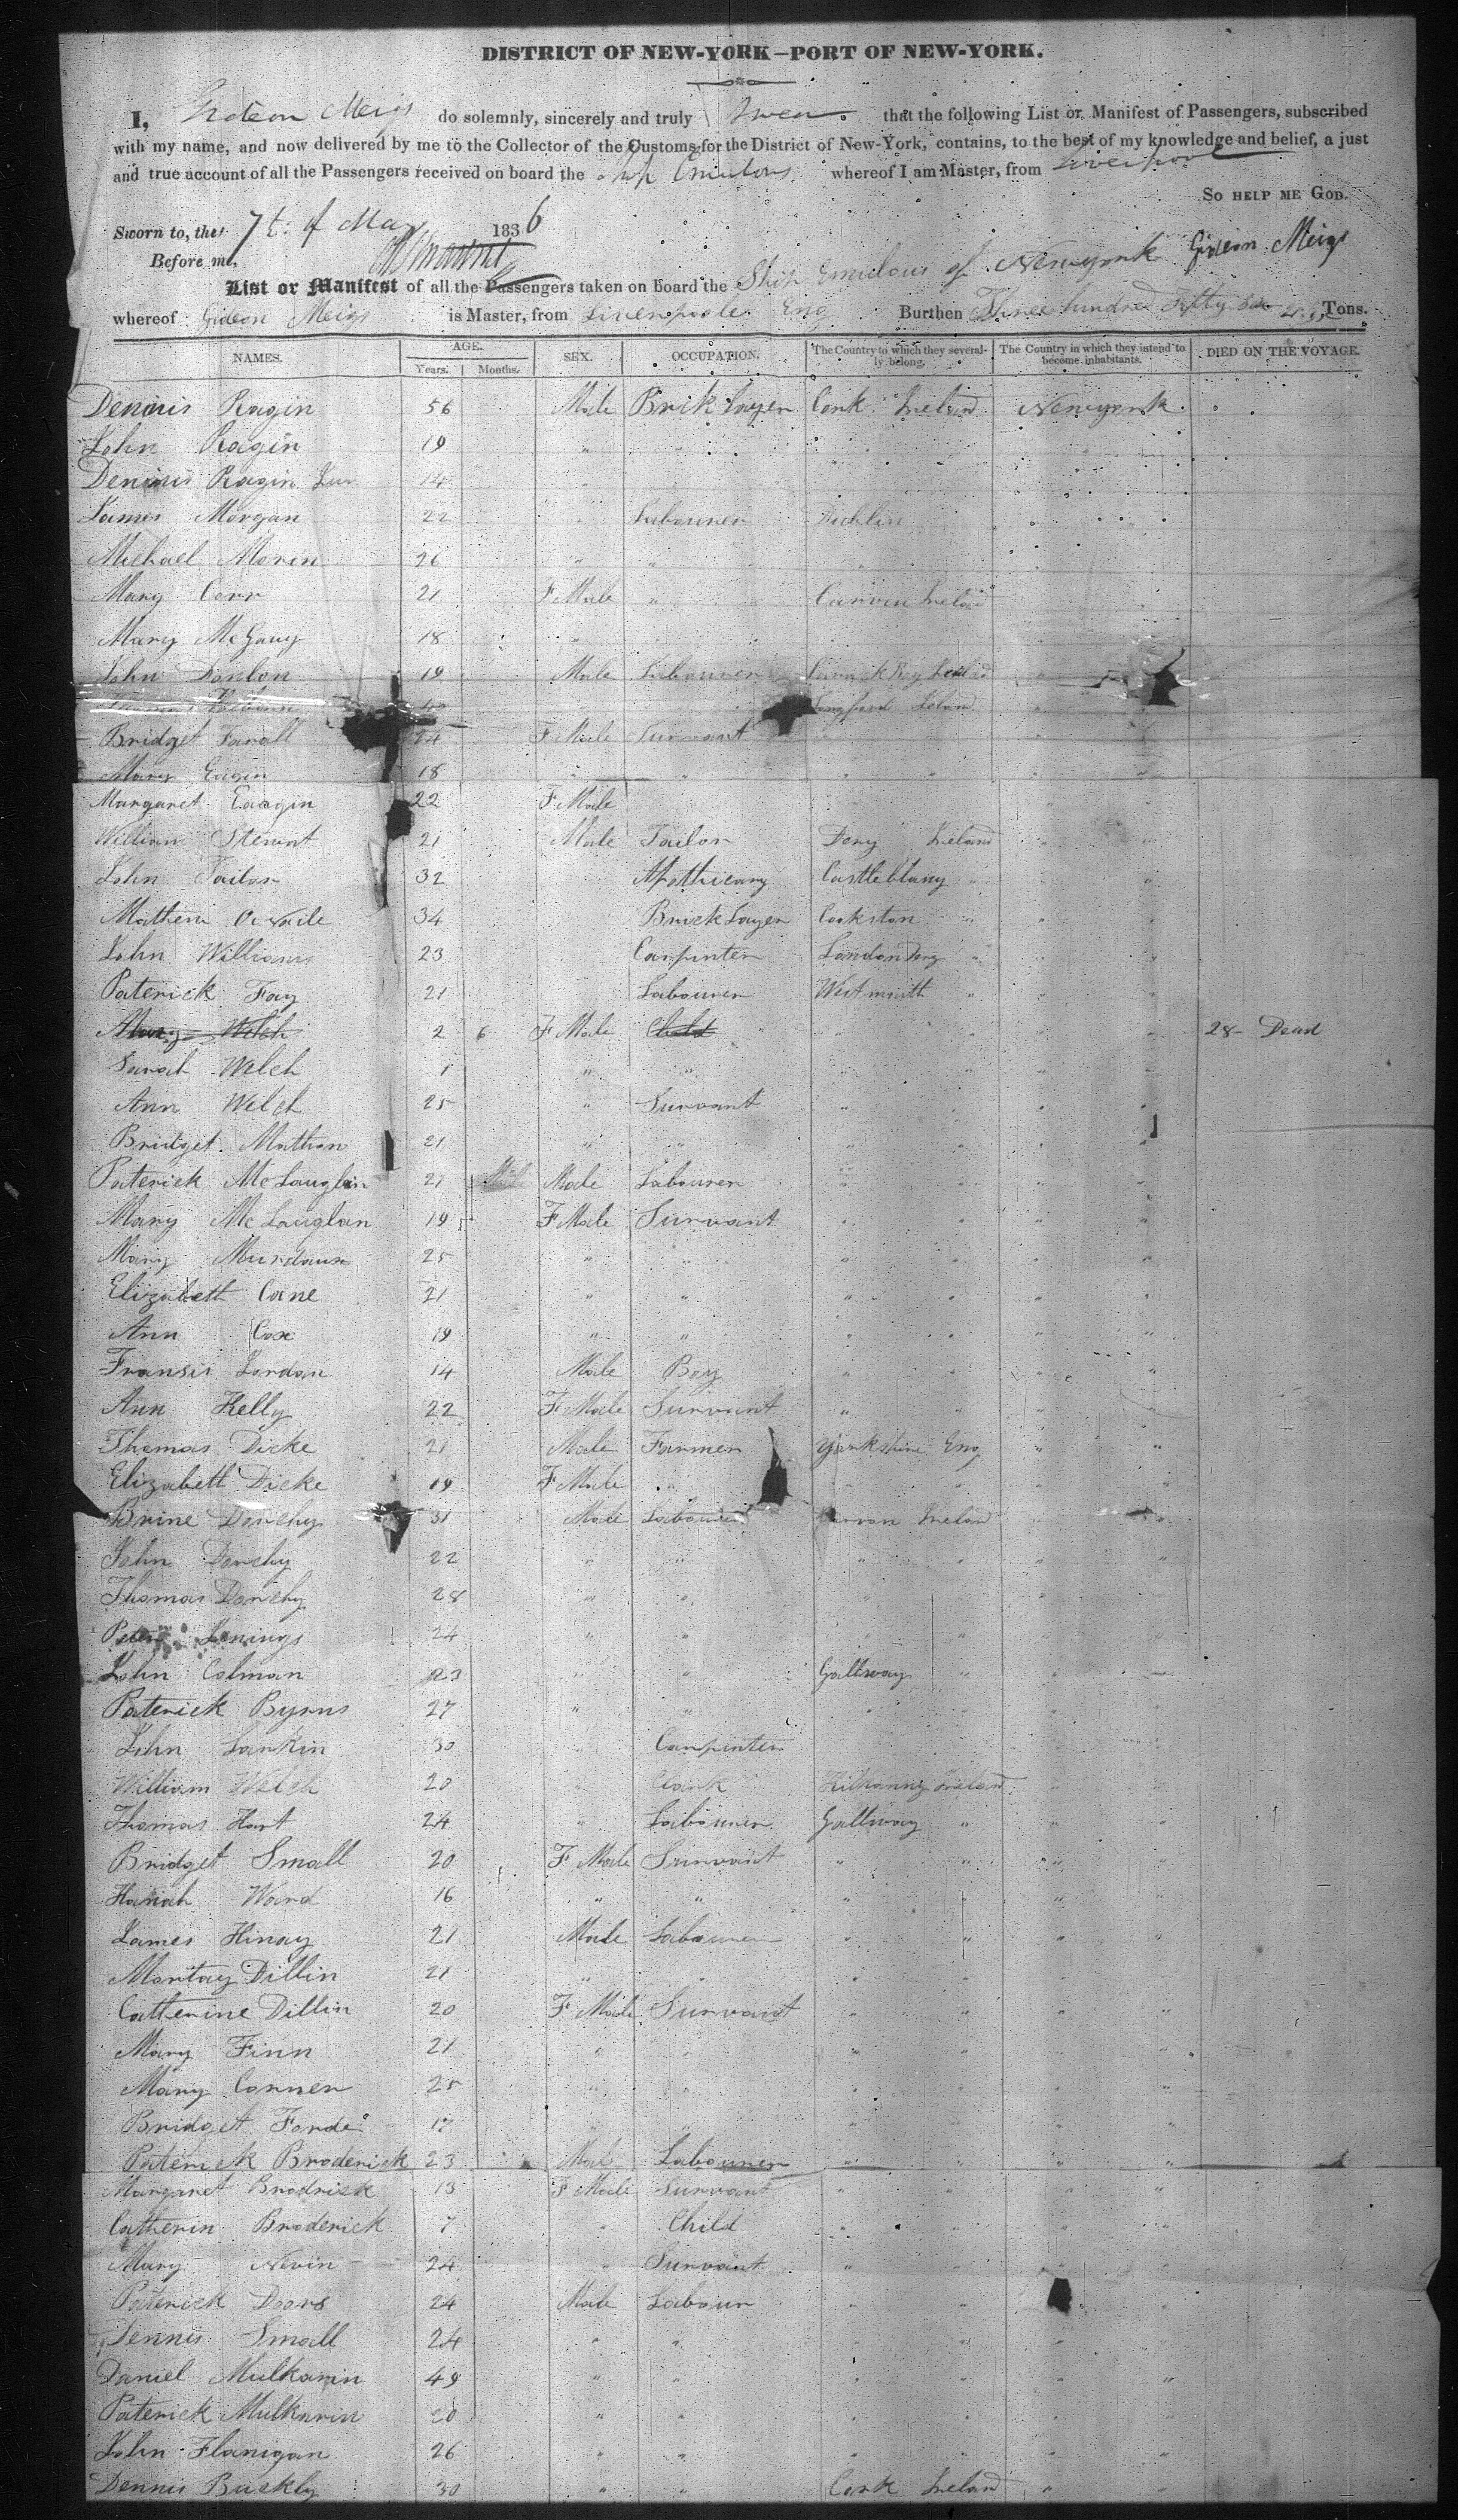 DISTRICT OF NEW-YORK—PORT OF NEW-YORK.
I, Gideon Meigs do solemnly, sincerely and truly Swear that the following List or Manifest of Passengers, subscribed
with my name, and now delivered by me to the Collector of the Customs for the District of New-York, contains, to the best of my knowledge and belief, a just
and true account of all the Passengers received on board the Ship Emulous whereof I am Master, from Liverpool
So HELP ME GOD.
Sworn to, the 7th of May 1836
Before me, Gideon Meigs
List or Manifest of all the Passengers taken on board the Ship Emulous of Newyork
whereof Gideon Meigs is Master, from Livenpoole Eng Burthen Three hundred Fifty Six Tons.
NAMES. AGE. Years. Months. SEX. OCCUPATION. The Country to which they severally belong. The Country in which they intend to become inhabitants. DIED ON THE VOYAGE.
Dennis Ragin 56 Male Brick Layer Cork Ireland Newyork
John Ragin 19 "
Dennis Ragin Jun 14 "
James Morgan 22 " Labourer Dublin
Michael Moren 26 " "
Mary Corr 21 F Male " Carvan Ireland
Mary McGauy 18 "
John Donlon 19 Male Labourer
Longford Ireland
Bridget Farall 24 F Male Survant
Mary Eagin 18 " "
Margaret Eaogin 22 F Male
William Stewart 21 Male Tailor Dery Ireland
John Tailor 32 Apothicary Castleblany "
Mathew 34 Brick Layer Cookston "
John Williams 23 Carpinter London Dery "
Paterick Fay 21 Labourer Westmeath "
Mary Welch 2 6 F Male Child " 28 - Dead
Sarah Welch 1 " "
Ann Welch 25 " Survant "
Bridget Mathan 21 " "
Paterick McLauglin 21 Male Male Labourer "
Mary McLauglan 19 F Male Survant "
Mary 25 " "
Elizabeth Cane 21 " " "
Ann Cox 19 " " "
Fransis Jordan 14 Male Boy "
Ann Kelly 22 F Male Survant " "
Thomas Dicke 21 Male Farmer Yorkshire Eng "
Elizabeth Dicke 19 F Male "
Brine Donchy 31 Male Labourer Carvan Ireland
John Donchy 22 " " "
Thomas Donchy 28 " " "
Peter Jenings 24 " "
John Colman 23 " " Gallway "
Paterick Byrns 27 " "
John Larkin 30 " Carpinter
William Welch 20 " Clark Kilkanny Ireland
Thomas Hart 24 " Labourer Gallway "
Bridget Small 20 F Male Survant " "
Hanah Ward 16 " " "
James Hinay 21 Male Labourer " "
Martay Dillin 21 " " "
Catherine Dillin 20 F Male Survant " "
Mary Finn 21 "
Mary Conner 25 " "
Bridget Forde 17 " "
Paterick Broderick 23 Male Labourer " "
Margaret Brodrick 13 F Male Survant " "
Catherin Broderick 7 " Child " "
Mary Nevin 24 " Survant " "
Paterick Doors 24 Male Labour "
Dennis Small 24 " "
Daniel Mulkarin 49 " "
Paterick Mulkarin 20 " "
John Flanigan 26 " "
Dennis Buckly 30 " " Cork Ireland "